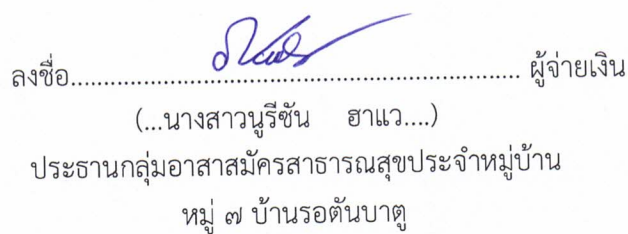 ลงชื่อ.................................................................. ผู้จ่ายเงิน
(...นางสาวนูรีซัน ฮาแว....)
ประธานกลุ่มอาสาสมัครสาธารณสุขประจำหมู่บ้าน
หมู่ ๗ บ้านรอตันบาตู